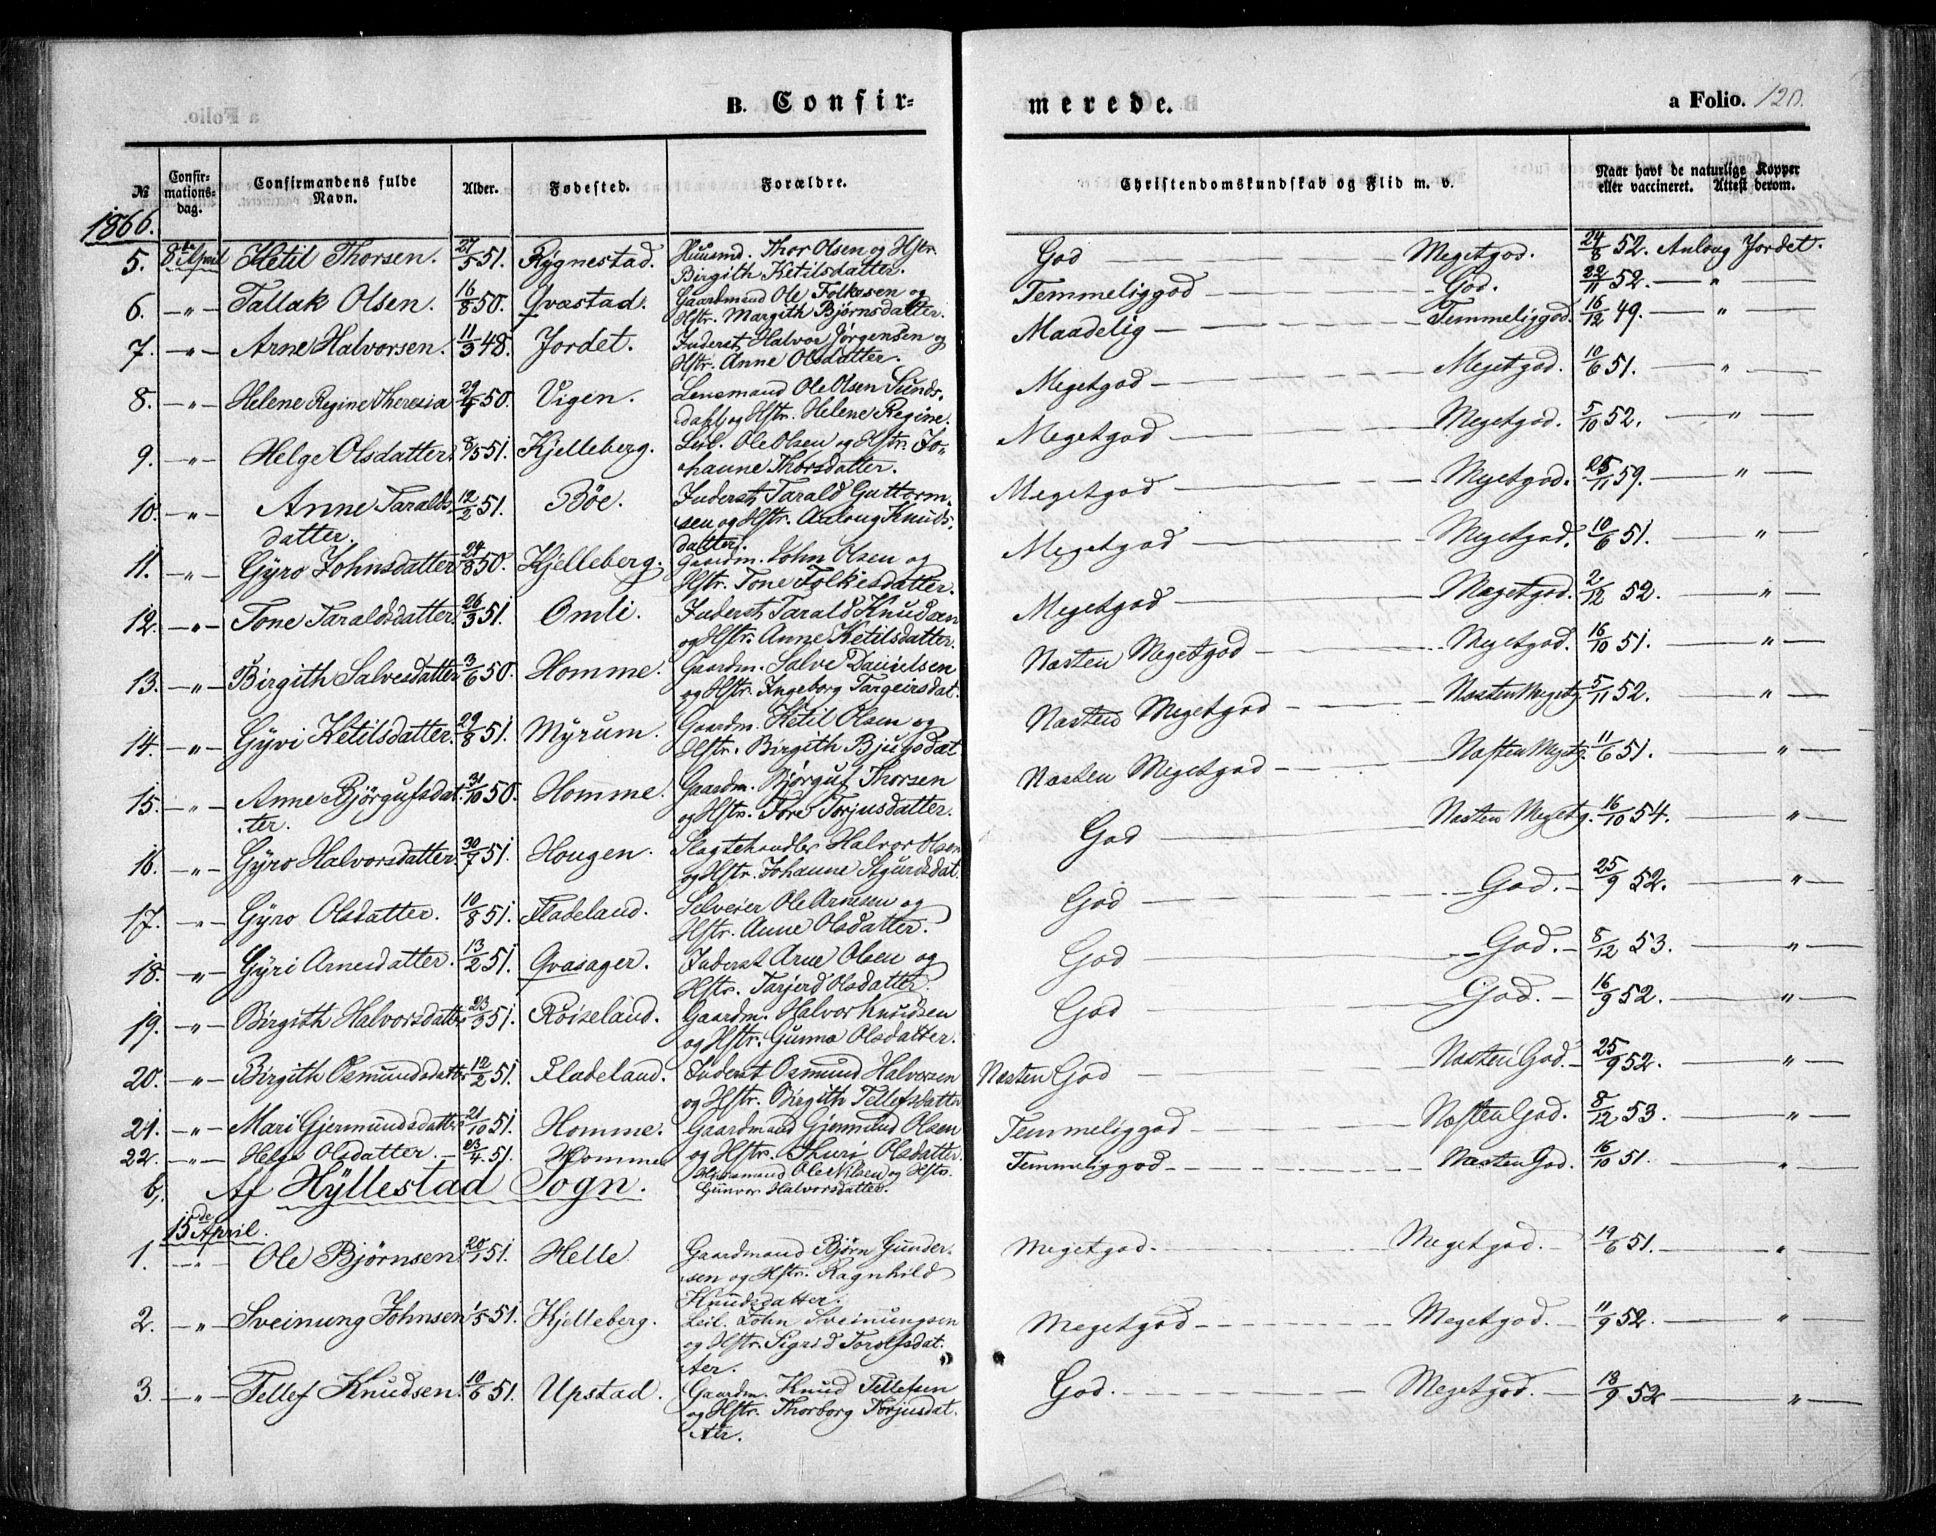 B. Confir-
merede.
a Folio. 120.
№
Confir-
mations-
dag.
Confirmandens fulde
Navn.
Alder.
Fødested.
Forældre.
Christendomskundskab og Flid m. v.
Naar havt de naturlige Kopper
eller vaccineret. Attest derom.
1866.
5. 8de April Ketil Thorsen. 27/5 51. Rygnestad. Huusmd. Thor Olsen og Hstr. God — Megetgod. 24/8 52. Aslong Jordet.
Birgith Ketilsdatter.
6. —„— Tallak Olsen. 16/8 50. Qvastad. Gaardmand Ole Folkesen og Temmeliggod — God. 22/11 52. — „
Hstr. Margith Bjørnsdatter.
7. —„— Arne Halvorsen. 11/3 48. Jordet. Inderst Halvor Jørgensen og Maadelig — Temmeliggod. 16/12 49. — „
Hstr. Anne Olsdatter.
8. —„— Helene Regine Theresia 29/4 50. Vigen. Lensmand Ole Olsen Sunds- Megetgod — Megetgod. 10/6 51. „
dahl og Hstr. Helene Regine.
9. —„— Helge Olsdatter. 8/5 51. Kjelleberg. Leil. Ole Olsen og Hstr. Jo- Megetgod — Megetgod. 5/10 52. — „ —
hanne Thorsdatter.
10. —„— Anne Taralds- 12/2 51. Bøe. Inderst Tarald Guttorm- Megetgod — Megetgod. 25/11 59. — „
datter. sen og Hstr. Asloug Knuds-
datter.
11. —„— Gyro Johnsdatter 24/8 50. Kjelleberg. Gaardm. John Olsen og Megetgod — Megetgod. 10/6 51. — „
Hstr. Tone Folkesdatter.
12. —„— Tone Taraldsdatter. 26/3 51. Omli. Inderst Tarald Knudsen Megetgod — Megetgod. 2/12 52. — „
og Hstr. Anne Ketilsdatter.
13. —„— Birgith Salvesdatter 3/6 50. Homme. Gaardm. Salve Danielsen Næsten Megetgod — Megetgod. 16/10 51. — „
og Hstr. Ingeborg Targeirsdat.
14. —„— Gyvi Ketilsdatter. 29/8 51. Myrum. Gaardm. Ketil Olsen og Næsten Megetgod — Næsten Megetg. 5/11 52. — „
Hstr. Birgith Bjugsdat
15. —„— Anne Bjørgufsdat- 31/10 50. Homme. Gaardm. Bjørguf Thorsen Næsten Megetgod — Næsten Megetg. 11/6 51. — „
ter. og Hstr. Tore Torjusdatter.
16. —„— Gyro Halvorsdatter. 30/7 51. Hougen. Slagtehandler Halvor Olsen God — Næsten Megetg. 16/10 54. — „
og Hstr. Johanne Sigurdsdat.
17. —„— Gyro Olsdatter. 10/8 51. Fladeland. Selveier Ole Arnesen og God — God. — 25/9 52. — „
Hstr. Anne Olsdatter.
18. —„— Gyri Arnesdatter. 13/2 51. Qvasager. Inderst Arne Olsen og God — God. — 8/12 53. — „
Hstr. Tarjerd Olsdatter.
19. —„— Birgith Halvorsdatter 23/3 51. Røiseland. Gaardm. Halvor Knudsen God — God. — 16/9 52. — „
og Hstr. Gunne Olsdatter.
20. —„— Birgith Osmundsdatter 12/2 51. Fladeland. Inderst Osmund Halvorsen Næsten God — Næsten God. — 25/9 52. — „
og Hstr. Birgith Tellefsdatter
21. —„— Mari Gjermundsdatter 21/10 51. Homme. Gaardmand Gjermund Olsen Temmeliggod — Næsten God. — 8/12 53. — „
og Hstr. Thuri Olsdatter.
22. —„— Helge Olsdatter. — 23/4 51. Homme Huusmand Ole Nilsen og Hstr. Temmeliggod — Næsten God. 16/10 51. — „
Gunvor Halvorsdatter.
b, Af Hyllestad Sogn.
15de April.
1. —„— Ole Bjørnsen 20/1 51. Helle Gaardmand Bjørn Gunder- Megetgod. Megetgod. — 19/6 51. — „
sen og Hstr. Ragnhild
Knudsdatter.
2. —„— Sveinung Johnsen 1/5 51. Kjelleberg. Leil. John Sveinungsen Megetgod — Megetgod. — 11/9 52. — „
og Hstr. Sigrid Torolfsdat-
ter.
3. —„— Tellef Knudsen. 10/6 51. Upstad. Gaardm. Knud Tellefsen God. — Megetgod. — 18/9 52 — „
og Hstr. Thorborg Torjusdat-
ter.